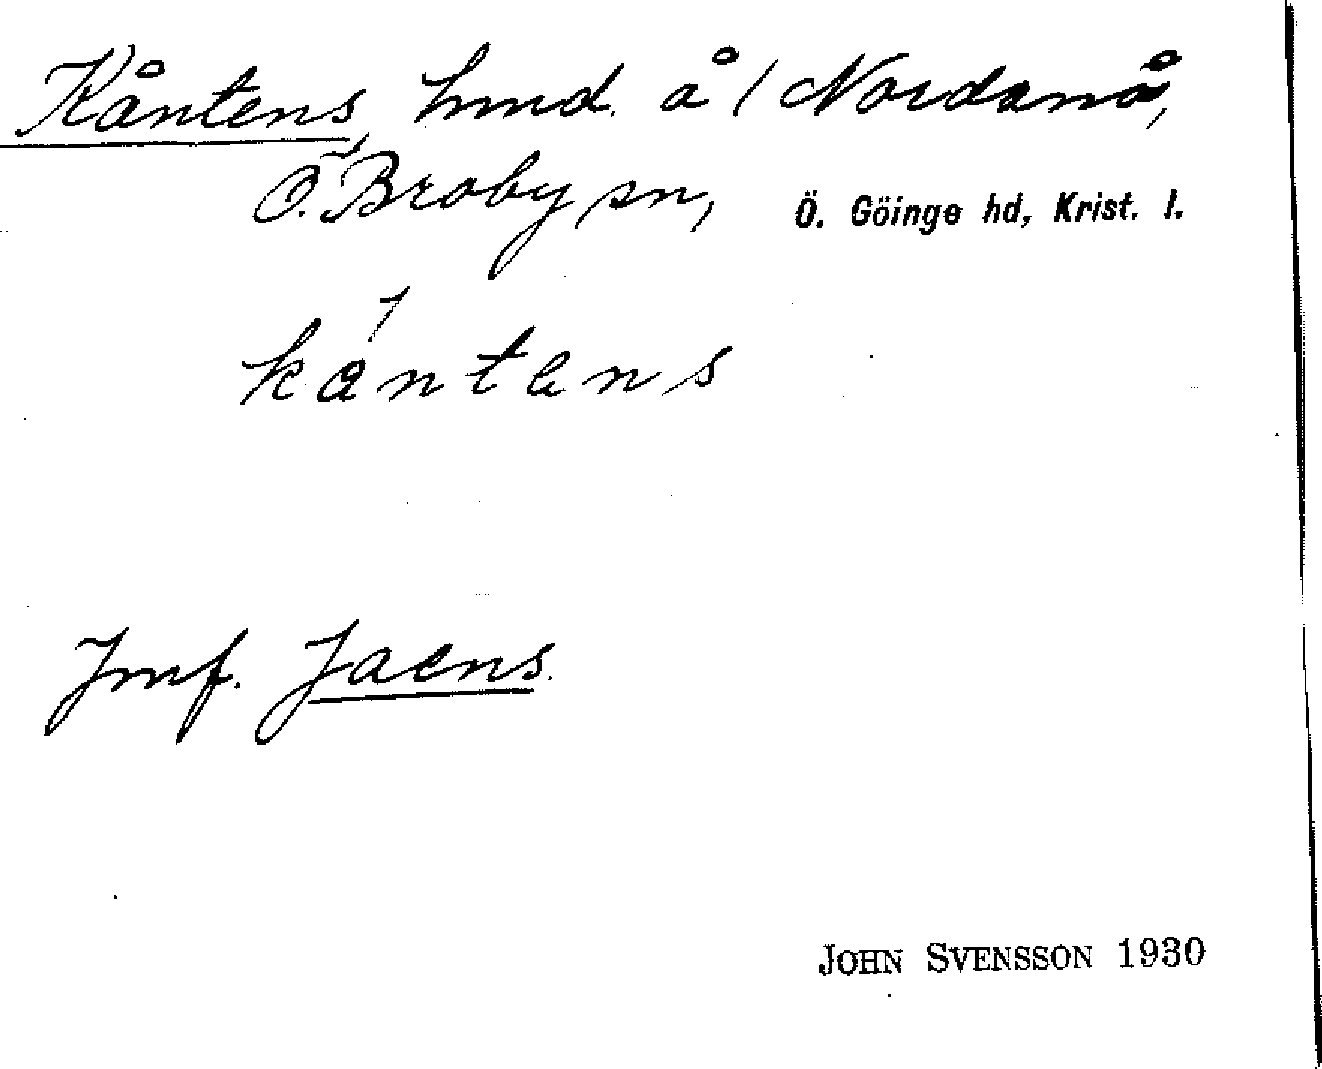 Kåntens, hmd. å 1 Nordanå,
Ö. Broby sn, Ö. Göinge hd, Krist. l.
kåntens
Jmf. Jaens.
JOHN SVENSSON 1930